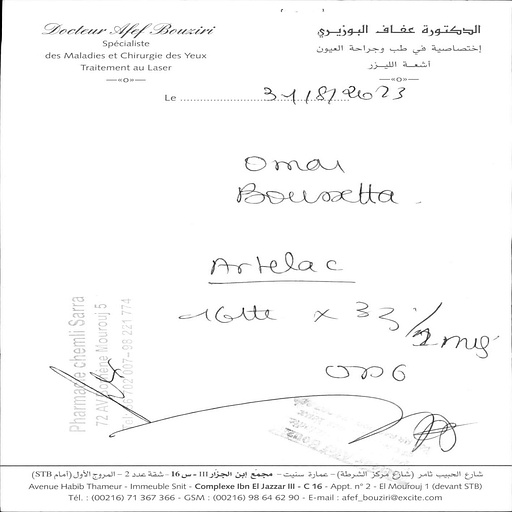 Docteur Afef Bouziri
Spécialiste
des Maladies et Chirurgie des Yeux
Traitement au Laser
الدكتورة عفاف البوزيري
إختصاصية في طب وجراحة العيون
أشعــة الليــزر
Le 31/8/2023
Omar
Artelac
1Gtte x 3
ODG
Pharmacie chemli Sarra
شارع الحبيب ثامر (شارع مركز الشرطة) - عمارة سنيت - مجمع إبن الجزار III - س 16 - شقة عدد 2 - المروج الأول (أمام STB)
Avenue Habib Thameur - Immeuble Snit - Complexe Ibn El Jazzar III - C 16 - Appt. n° 2 - El Mourouj 1 (devant STB)
Tél. : (00216) 71 367 366 - GSM : (00216) 98 64 62 90 - E-mail : afef_bouziri@excite.com